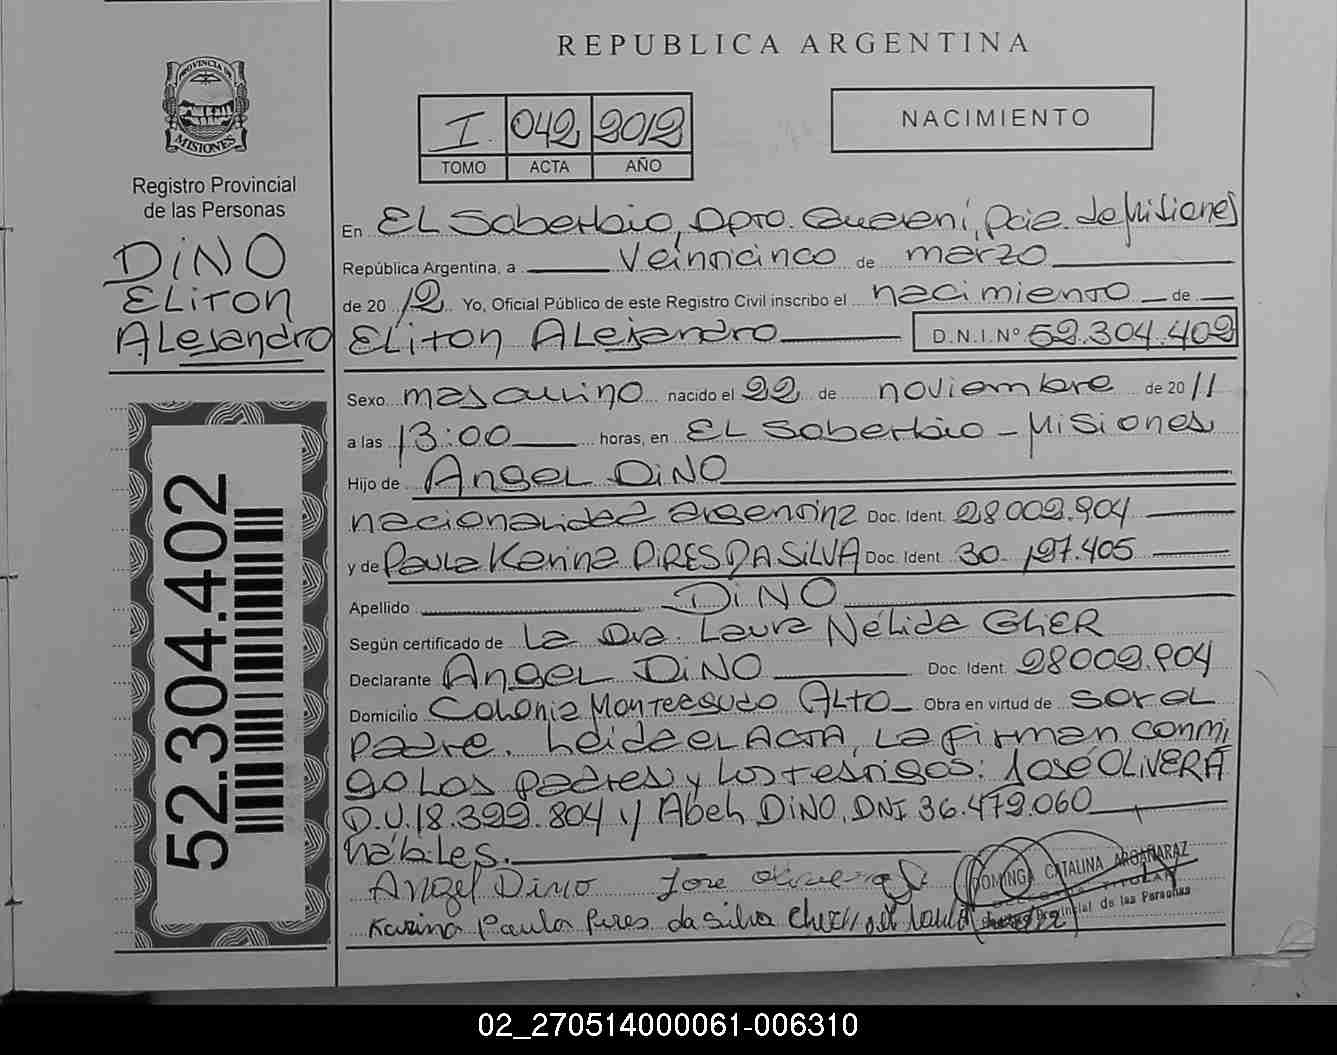 REPUBLICA ARGENTINA
PROVINCIA DE
MISIONES
Registro Provincial
de las Personas
DiNO
ELiTON
ALejandro
52.304.402
I. 042 2012
TOMO ACTA AÑO
NACIMIENTO
En EL Soberbio, Dpto. Guaraní, Pcia. de Misiones
República Argentina, a Veinticinco de marzo
de 20 12 Yo, Oficial Público de este Registro Civil inscribo el nacimiento de
ELiton ALejandro D.N.I. Nº 52.304.402
Sexo masculino nacido el 22 de noviembre de 20 11
a las 13:00 horas, en EL Soberbio - Misiones
Hijo de Angel DiNO
nacionalidad argentina Doc. Ident. 28.002.904
y de Paula Karina PiRES DA SiLVA Doc. Ident. 30.197.405
Apellido DiNO
Según certificado de La Dra. Laura Nélida GLIER
Declarante Angel DiNO Doc. Ident. 28002.904
Domicilio Colonia Monteagudo ALTO Obra en virtud de ser el
padre. Leida el ACTA, La firman conmi
go Los padres y Los testigos: José OLIVERA
D.U. 18.399.804 y Abel DiNO, DNI 36.479.060
hábiles.
Angel Dino Jose Olivera
Karina Paula Pires da Silva
DOMINGA CATALINA ARGAÑARAZ
TITULAR
Provincial de las Personas
02_270514000061-006310